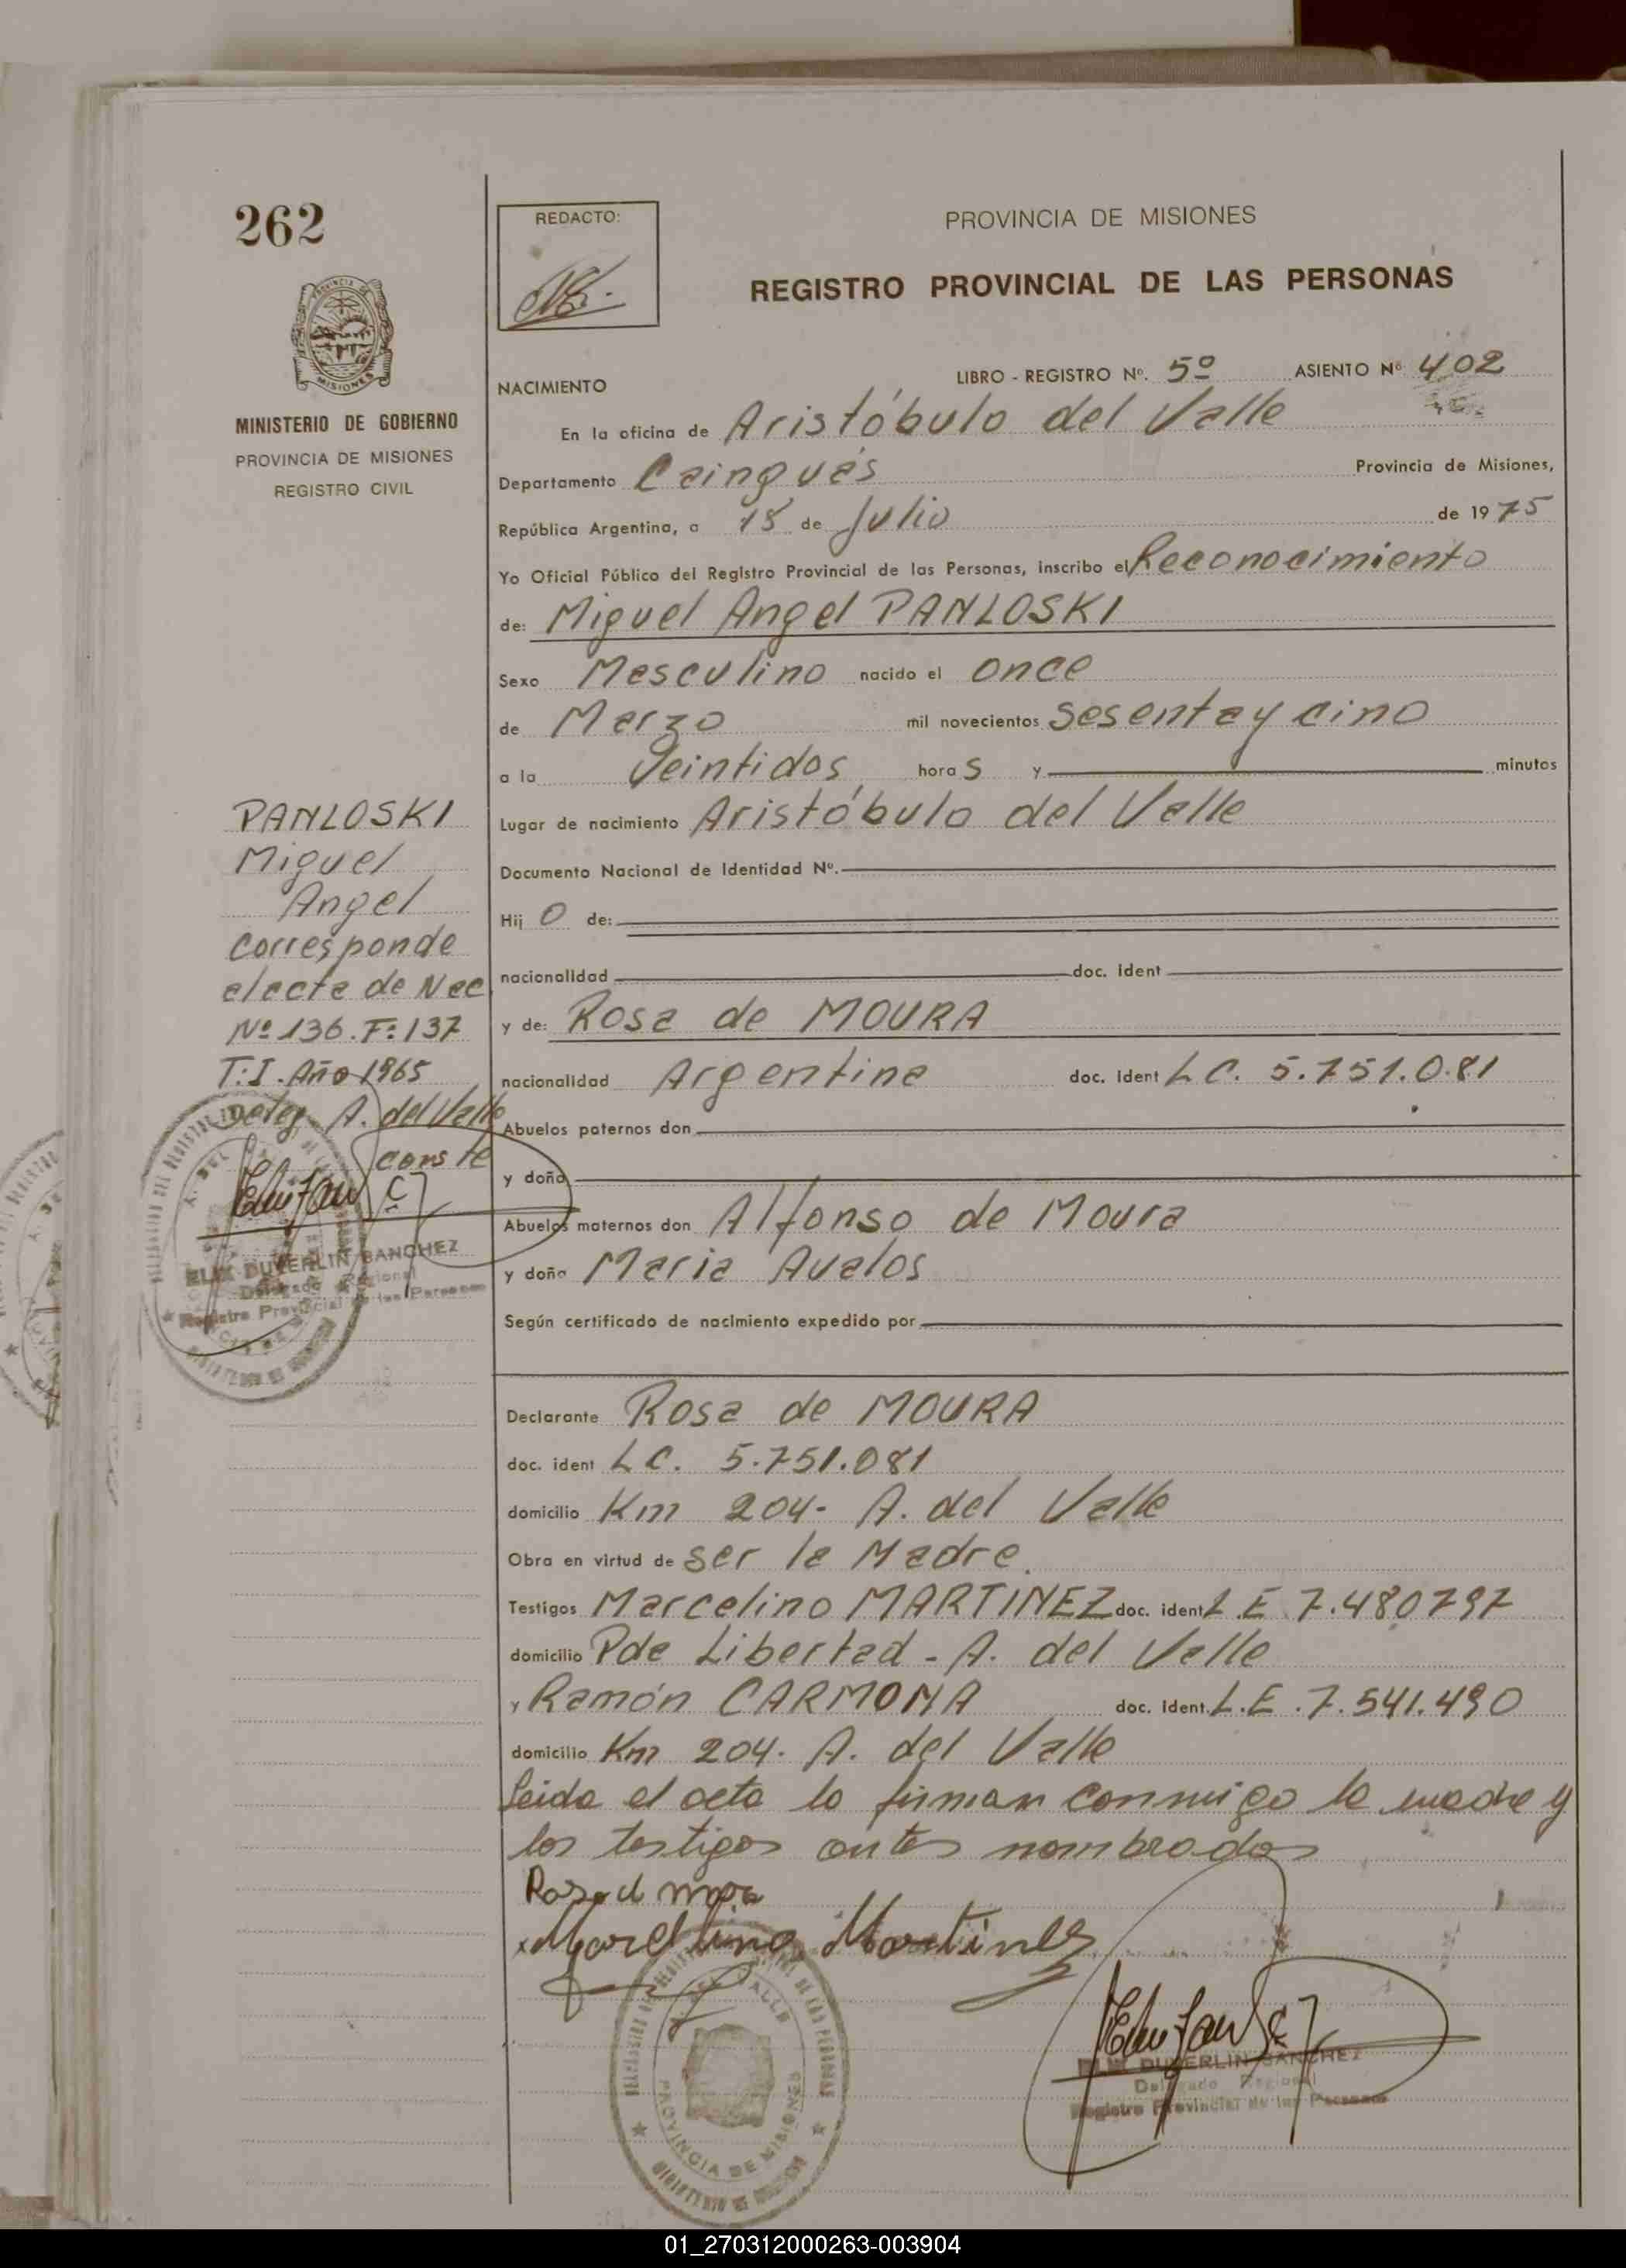 262
REDACTO:
PROVINCIA DE MISIONES
REGISTRO PROVINCIAL DE LAS PERSONAS
MISIONES
MINISTERIO DE GOBIERNO
PROVINCIA DE MISIONES
REGISTRO CIVIL
NACIMIENTO
LIBRO - REGISTRO Nº. 5º ASIENTO Nº 402
En la oficina de Aristóbulo del Valle
Departamento Cainguás Provincia de Misiones,
República Argentina, a 18 de Julio de 1975
Yo Oficial Público del Registro Provincial de las Personas, inscribo el Reconocimiento
de: Miguel Angel PANLOSKI
Sexo Masculino nacido el once
de Marzo mil novecientos sesenta y cino
a la Veintidos hora s y minutos
Lugar de nacimiento Aristóbulo del Valle
Documento Nacional de Identidad Nº.
Hij o de:
nacionalidad doc. ident
y de: Rosa de MOURA
nacionalidad Argentina doc. ident LC. 5.751.0.81
Abuelos paternos don
y doña
Abuelos maternos don Alfonso de Moura
y doña Maria Avalos
Según certificado de nacimiento expedido por
PANLOSKI
Miguel
Angel
corresponde
al acta de Nac
Nº 136. F: 137
T: I. Año 1965
Deleg A. del Valle
conste
ELIX DUVERLIN SANCHEZ
Delegado Regional
Registro Provincial de las Personas
Declarante Rosa de MOURA
doc. ident LC. 5.751.081
domicilio Km 204- A. del Valle
Obra en virtud de ser la Madre.
Testigos Marcelino MARTINEZ doc. ident L.E 7.480797
domicilio Pda Libertad - A. del Valle
y Ramón CARMONA doc. ident. L.E. 7.541.490
domicilio Km 204. A. del Valle
Leida el acta la firman conmigo la madre y
los testigos antes nombrados
Marcelino Martines
DELEGACION DEL REGISTRO DE LAS PERSONAS
VALLE
PROVINCIA DE MISIONES
MINISTERIO DE GOBIERNO
ELIX DUVERLIN SANCHEZ
Delegado Regional
Registro Provincial de las Personas
01_270312000263-003904